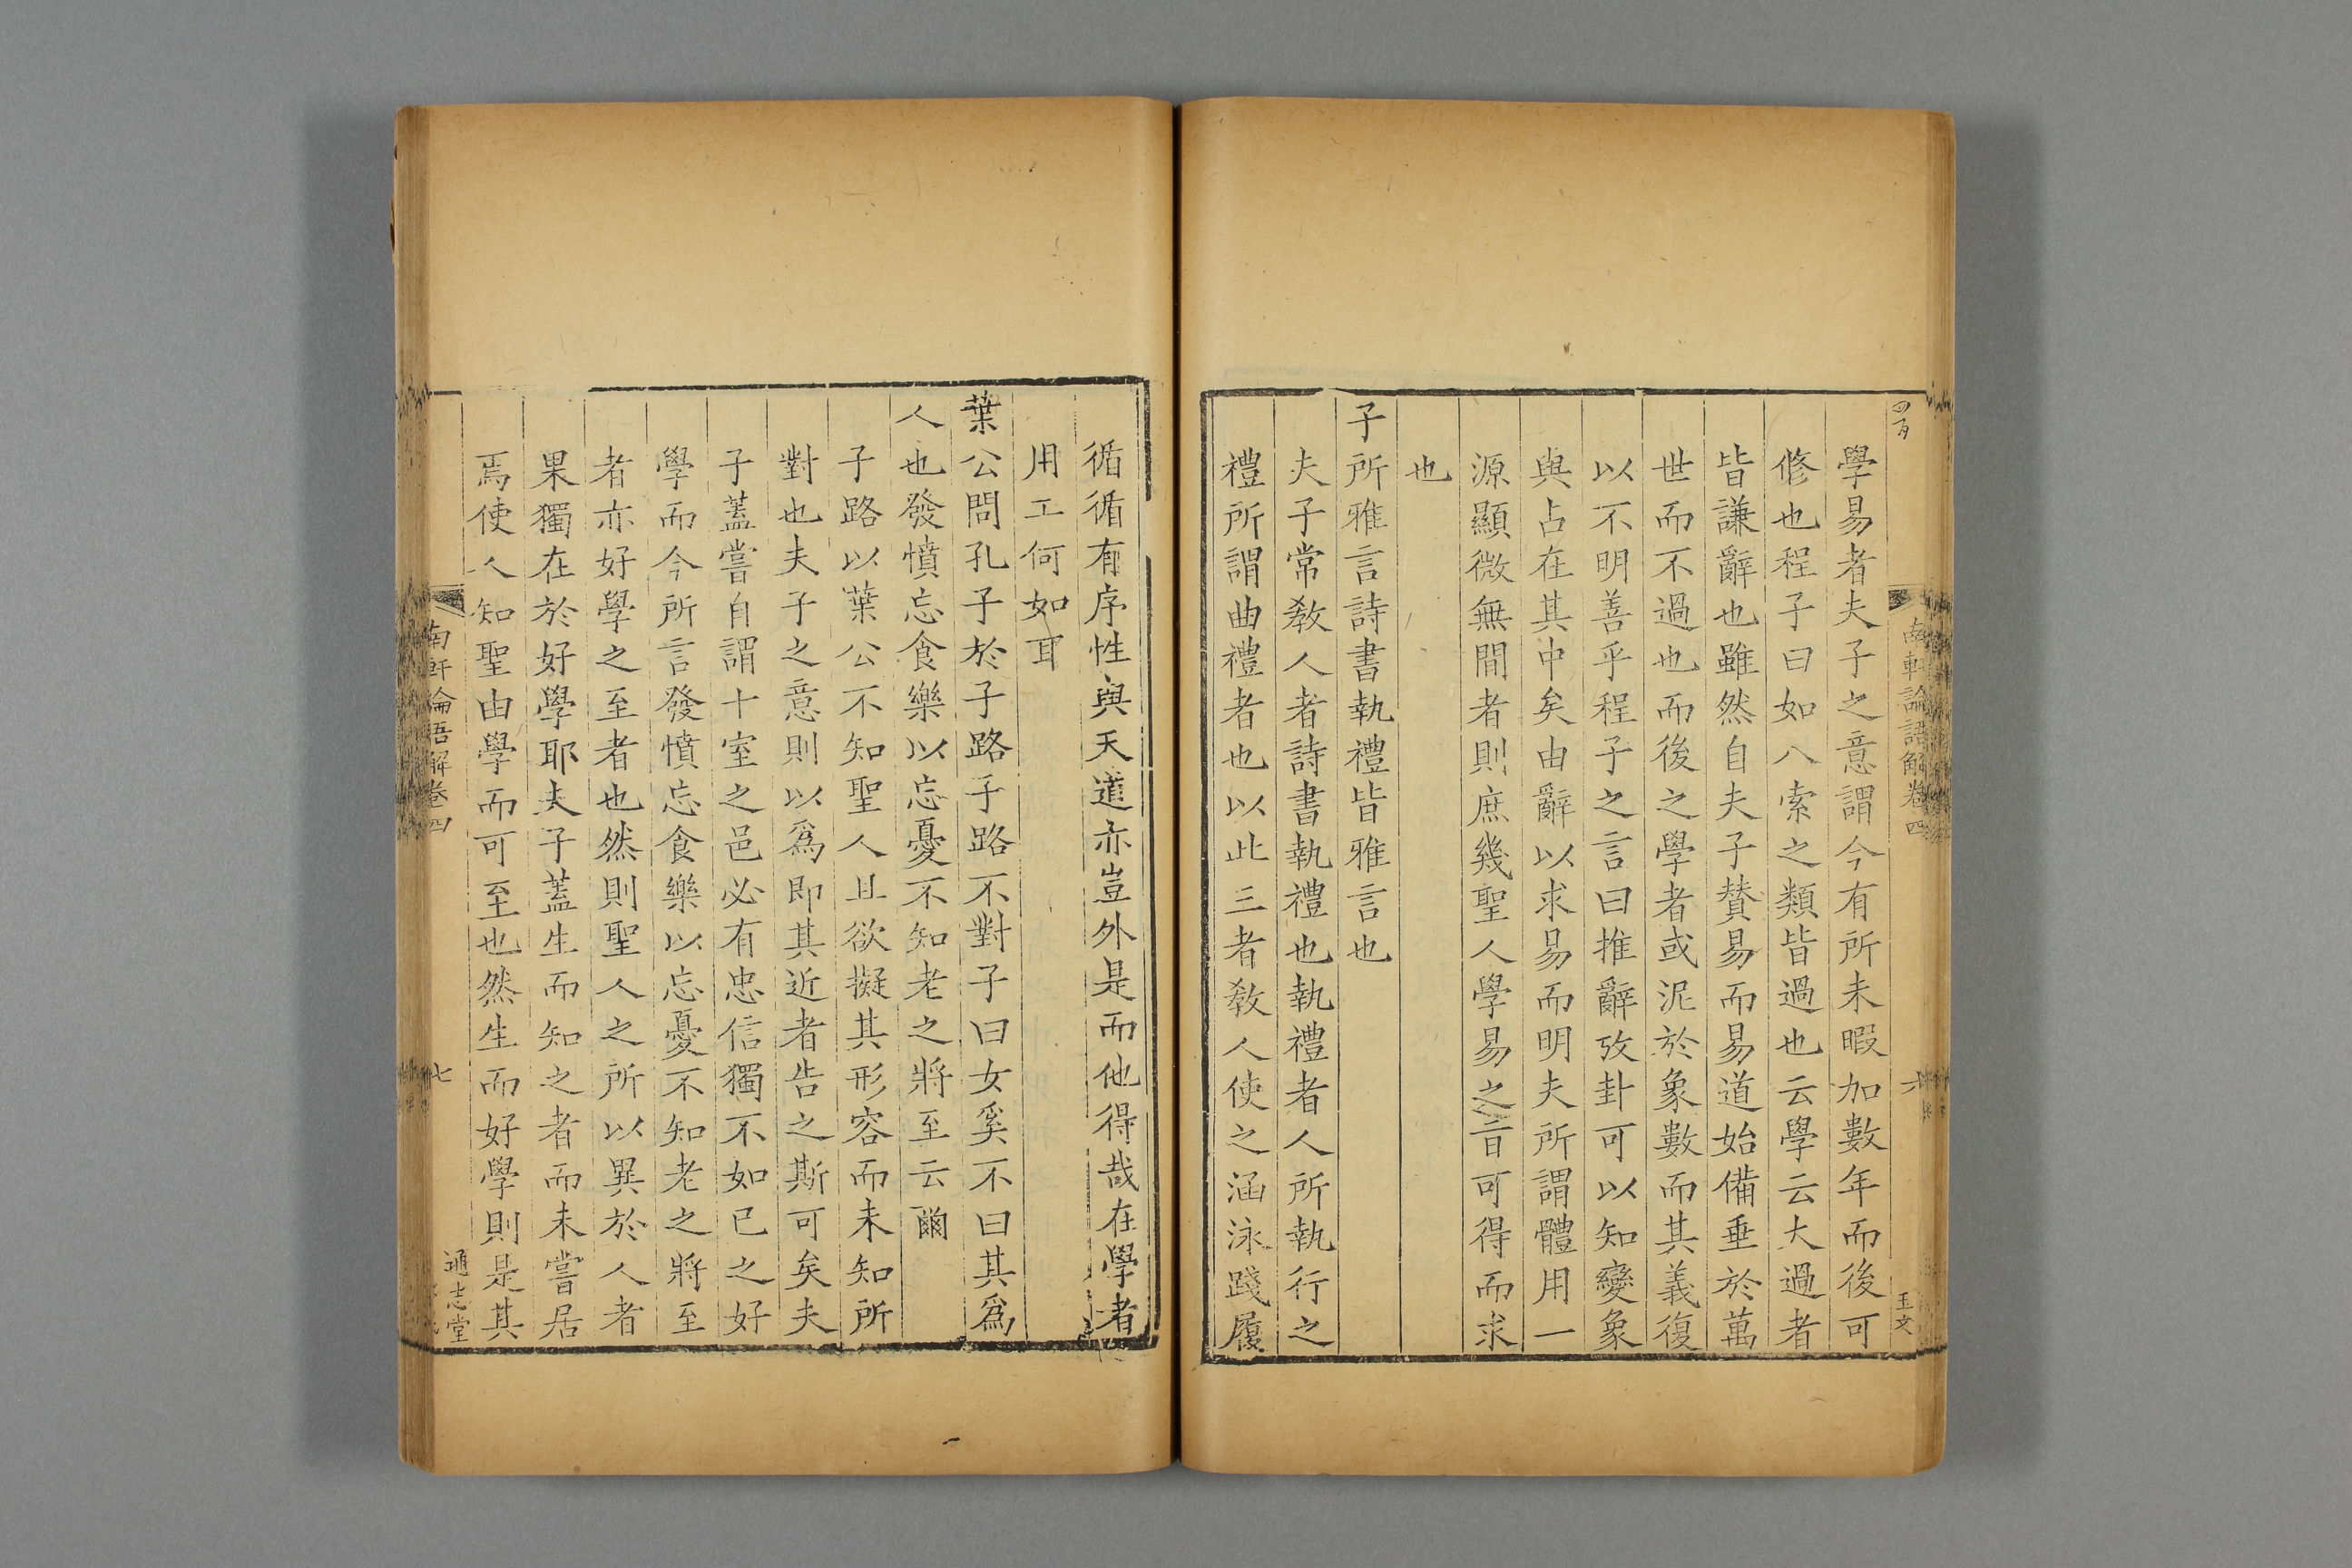 南軒論語解卷四
六
玉文
學易者夫子之意謂今有所未暇加數年而後可
脩也程子曰如八索之類皆過也云學云大過者
皆謙辭也雖然自夫子贊易而易道始備垂於萬
世而不過也而後之學者或泥於象數而其義復
以不明善乎程子之言曰推辭攷卦可以知變象
與占在其中矣由辭以求易而明夫所謂體用一
源顯微無間者則庶幾聖人學易之㫖可得而求
也
子所雅言詩書執禮皆雅言也
夫子常敎人者詩書執禮也執禮者人所執行之
禮所謂曲禮者也以此三者敎人使之涵泳踐履
循循有序性與天道亦豈外是而他得哉在學者
用工何如耳
葉公問孔子於子路子路不對子曰女奚不曰其爲
人也發憤忘食樂以忘憂不知老之將至云爾
子路以葉公不知聖人且欲擬其形容而未知所
對也夫子之意則以爲即其近者告之斯可矣夫
子蓋嘗自謂十室之邑必有忠信獨不如已之好
學而今所言發憤忘食樂以忘憂不知老之將至
者亦好學之至者也然則聖人之所以異於人者
果獨在於好學耶夫子蓋生而知之者而未嘗居
焉使人知聖由學而可至也然生而好學則是其
南軒論語解卷四
七
通志堂